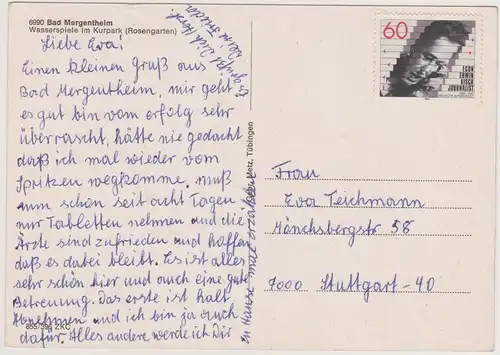 6990 Bad Mergentheim
Wasserspiele im Kurpark (Rosengarten)
Liebe Eva!
Einen kleinen Gruß aus
Bad Mergentheim, mir geht
es gut bin vom erfolg sehr
überrascht, hätte nie gedacht
daß ich mal wieder vom
Spritzen wegkomme, muß
nun schon seit acht Tagen
nur Tabletten nehmen und die
Ärzte sind zufrieden und hoffen
daß es dabei bleibt. Es ist alles
sehr schön hier und auch eine gute
Betreuung. Das erste ist halt
Abnehmen und ich bin ja auch
dafür. Alles andere werde ich Dir
zu Hause mal erzählen
Es grüßt Dich Herzl.
Deine Frieda
855/396 ZKC
Metz, Tübingen
60
EGON
ERWIN
KISCH
JOURNALIST
Frau
Eva Teichmann
Mönchsbergstr 58
7000 Stuttgart-40